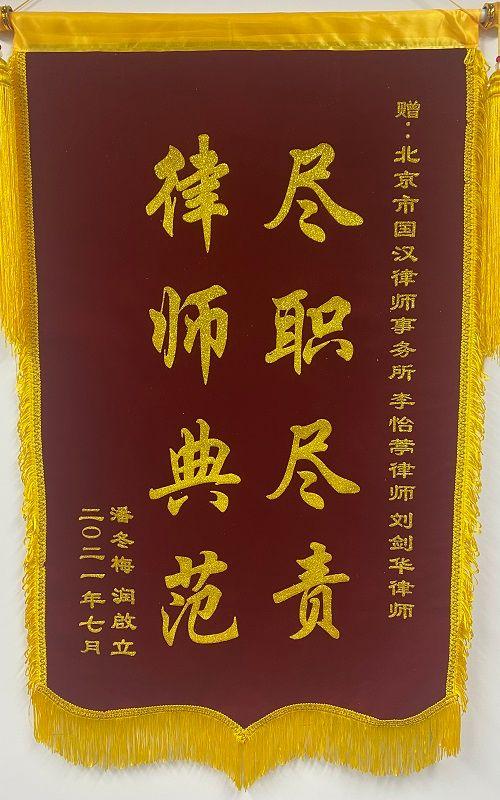 赠：北京市国汉律师事务所李怡葶律师刘剑华律师
尽职尽责
律师典范
潘冬梅 润啟立
二〇二一年七月